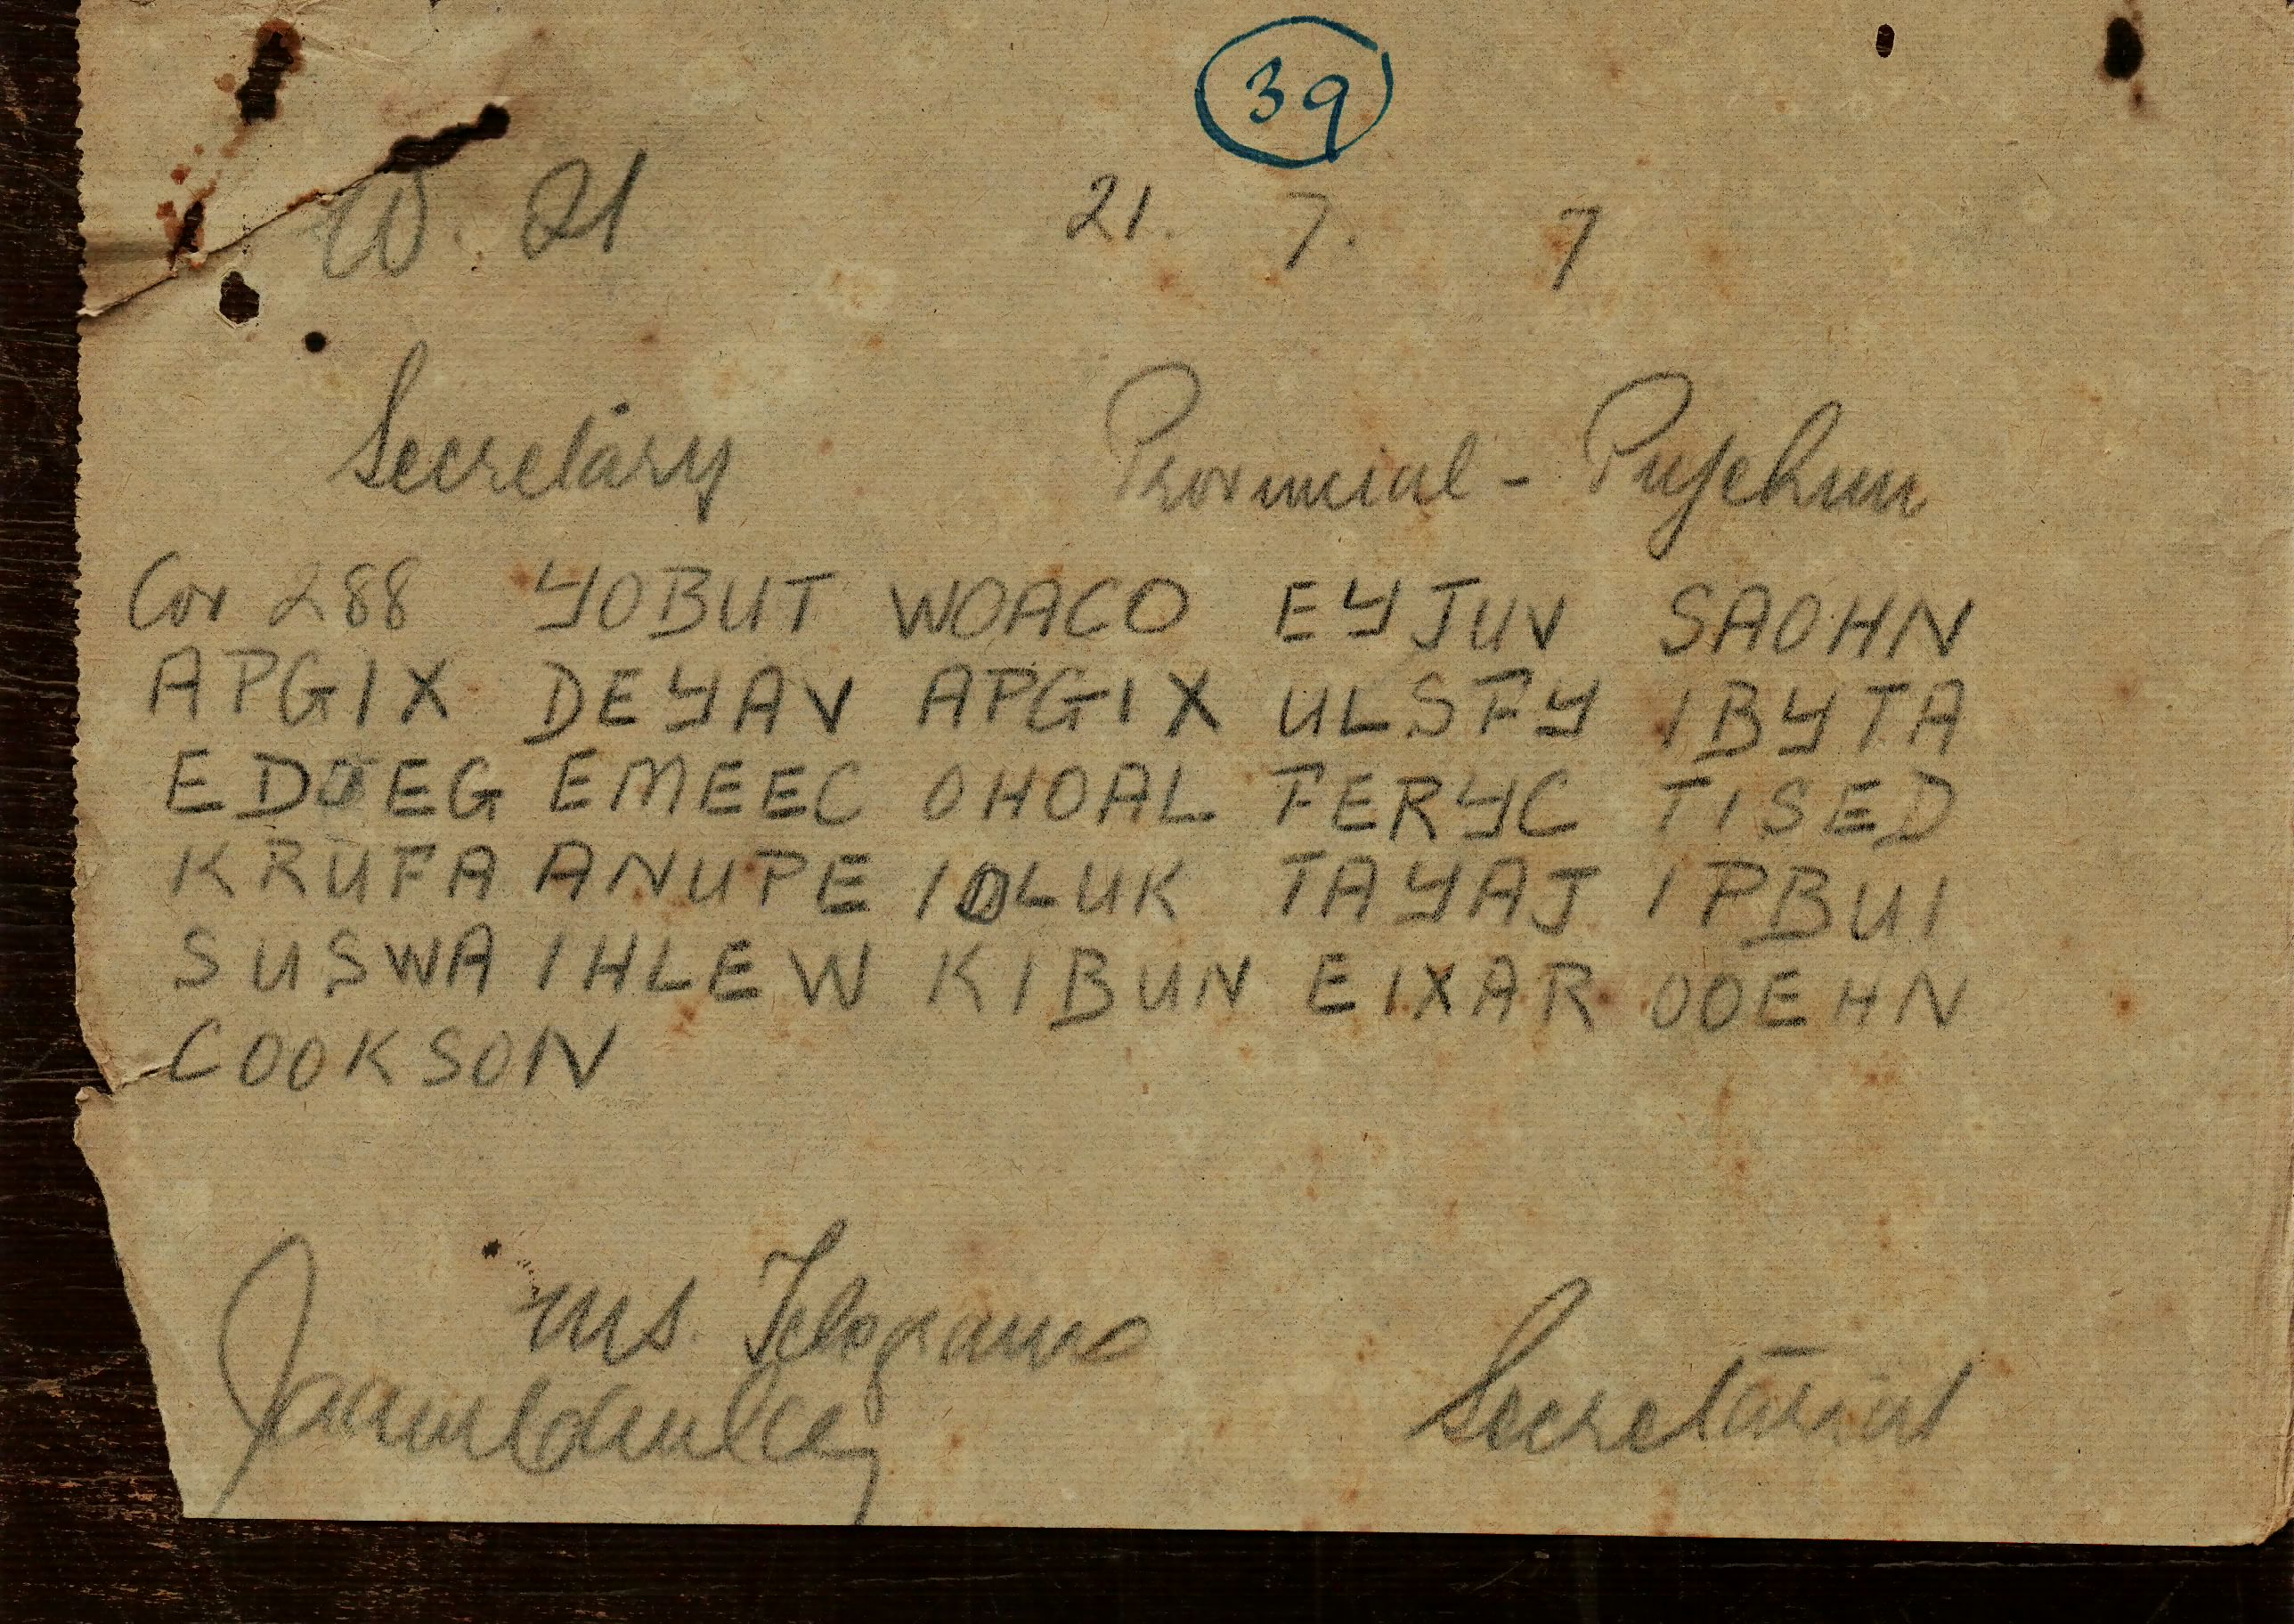 39
W. 21 21. 7. 7
Secretary Provincial - Pujehun
Cov 288 YOBUT WOACO EYJUV SAOHN
APGIX DEYAV APGIX ULSFY IBYTA
EDOEG EMEEC OHOAL FERYC TISED
KRUFA ANUPE IOLUK TAYAJ IPBUI
SUSWA IHLEW KIBUN EIXAR OOEHN
COOKSON
Secretariat